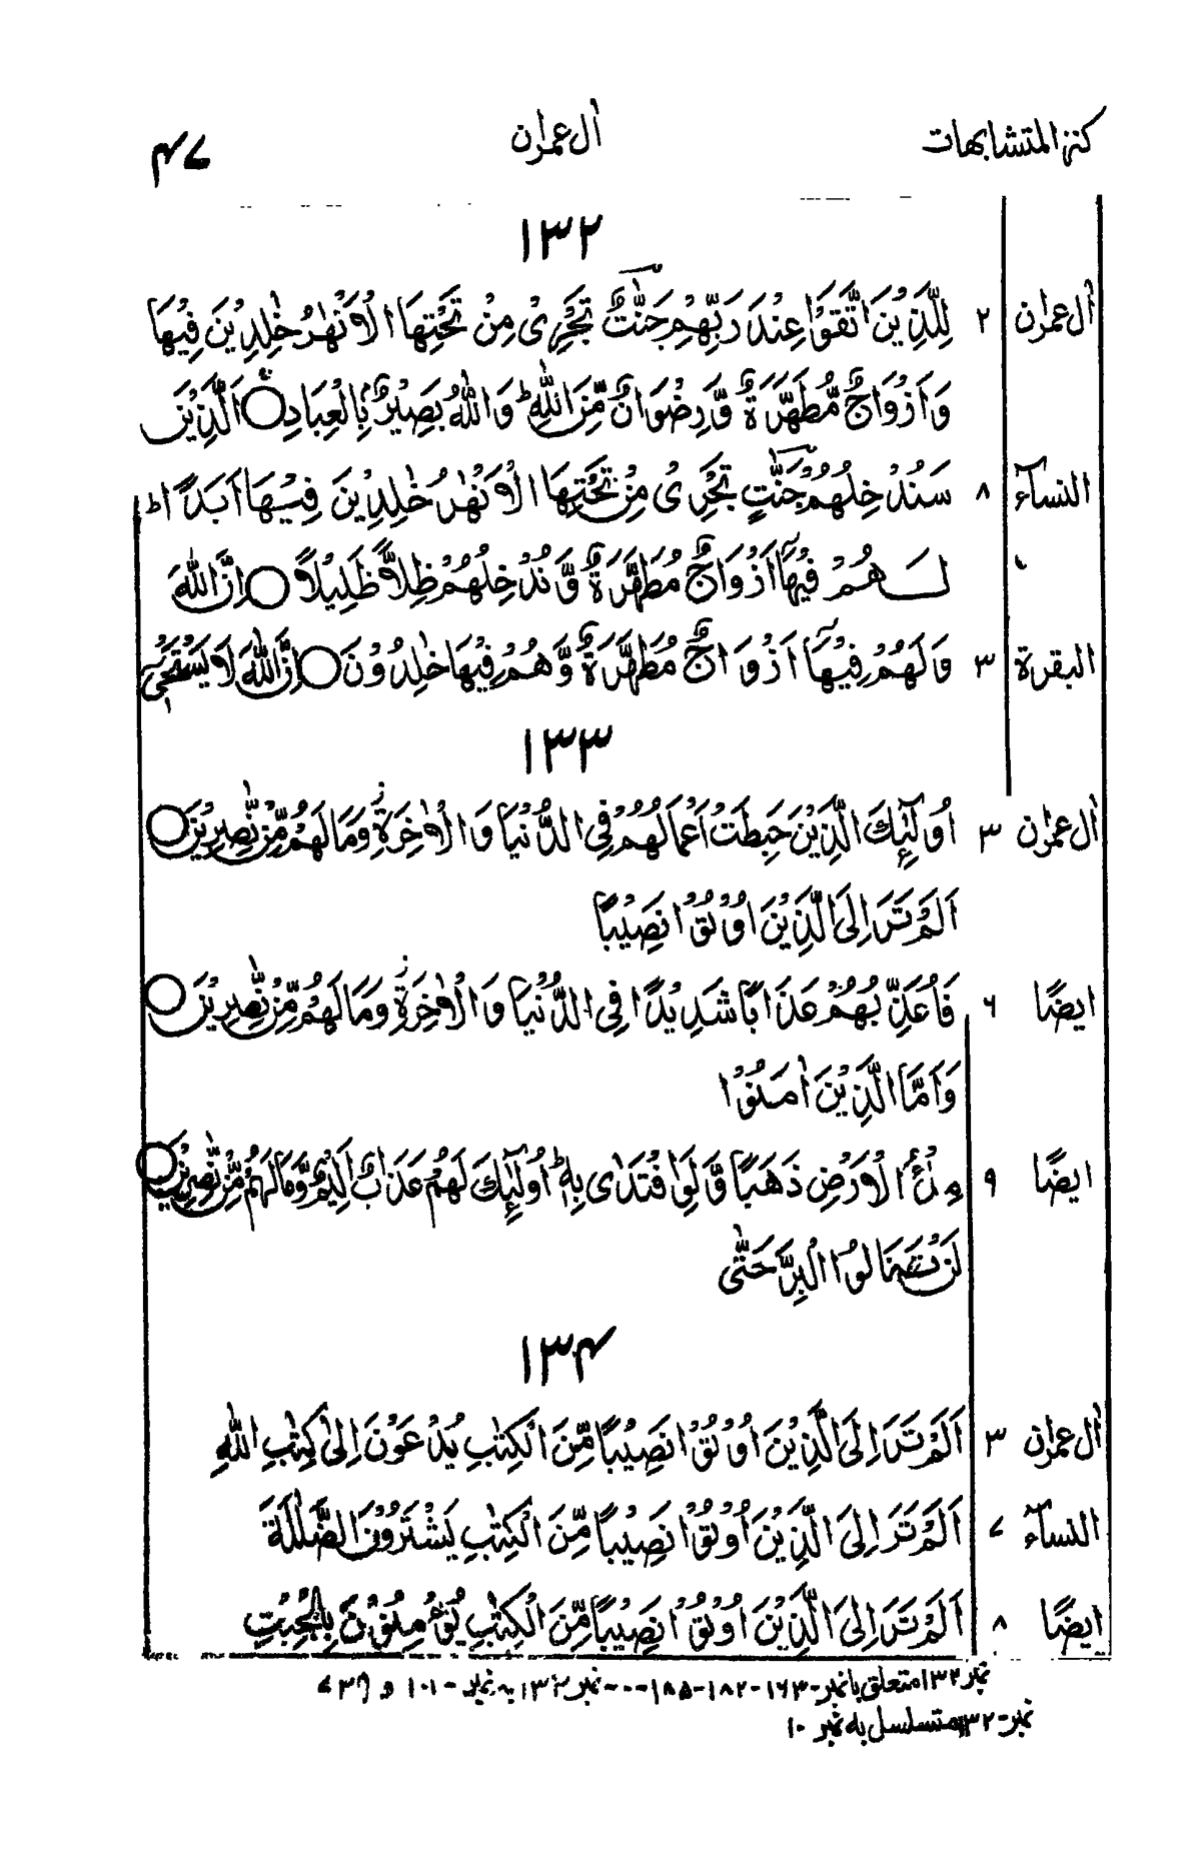 کنز المتشابہات اٰل عمرٰن ۴۷
۱۳۲
اٰل عمرٰن ۲ لِلَّذِيْنَ اتَّقَوْا عِنْدَ رَبِّهِمْ جَنّٰتٌ تَجْرِىْ مِنْ تَحْتِهَا الْاَنْهٰرُ خٰلِدِيْنَ فِيْهَا
وَاَزْوَاجٌ مُّطَهَّرَةٌ وَّرِضْوَانٌ مِّنَ اللّٰهِ ؕ وَاللّٰهُ بَصِيْرٌۢ بِالْعِبَادِ ○ اَلَّذِيْنَ
النسآء ۸ سَنُدْخِلُهُمْ جَنّٰتٍ تَجْرِىْ مِنْ تَحْتِهَا الْاَنْهٰرُ خٰلِدِيْنَ فِيْهَا اَبَدًا ؕ
لَهُمْ فِيْهَاۤ اَزْوَاجٌ مُّطَهَّرَةٌ وَّنُدْخِلُهُمْ ظِلًّا ظَلِيْلًا ○ اِنَّ اللّٰهَ
البقرة ۳ وَلَهُمْ فِيْهَاۤ اَزْوَاجٌ مُّطَهَّرَةٌ وَّهُمْ فِيْهَا خٰلِدُوْنَ ○ اِنَّ اللّٰهَ لَا يَسْتَحْىٖۤ
۱۳۳
اٰل عمرٰن ۳ اُولٰٓئِكَ الَّذِيْنَ حَبِطَتْ اَعْمَالُهُمْ فِى الدُّنْيَا وَالْاٰخِرَةِ ز وَمَا لَهُمْ مِّنْ نّٰصِرِيْنَ ○
اَلَمْ تَرَ اِلَى الَّذِيْنَ اُوْتُوْا نَصِيْبًا
ايضًا ۶ فَاُعَذِّبُهُمْ عَذَابًا شَدِيْدًا فِى الدُّنْيَا وَالْاٰخِرَةِ ز وَمَا لَهُمْ مِّنْ نّٰصِرِيْنَ ○
وَاَمَّا الَّذِيْنَ اٰمَنُوْا
ايضًا ۹ مِلْءُ الْاَرْضِ ذَهَبًا وَّلَوِ افْتَدٰى بِهٖ ؕ اُولٰٓئِكَ لَهُمْ عَذَابٌ اَلِيْمٌ وَّمَا لَهُمْ مِّنْ نّٰصِرِيْنَ ○
لَنْ تَنَالُوا الْبِرَّ حَتّٰى
۱۳۴
اٰل عمرٰن ۳ اَلَمْ تَرَ اِلَى الَّذِيْنَ اُوْتُوْا نَصِيْبًا مِّنَ الْكِتٰبِ يُدْعَوْنَ اِلٰى كِتٰبِ اللّٰهِ
النسآء ۷ اَلَمْ تَرَ اِلَى الَّذِيْنَ اُوْتُوْا نَصِيْبًا مِّنَ الْكِتٰبِ يَشْتَرُوْنَ الضَّلٰلَةَ
ايضًا ۸ اَلَمْ تَرَ اِلَى الَّذِيْنَ اُوْتُوْا نَصِيْبًا مِّنَ الْكِتٰبِ يُؤْمِنُوْنَ بِالْجِبْتِ
نمبر ۱۳۲ متعلق با نمبر - ۱۶۳ - ۱۸۲ - ۱۸۵ - نمبر ۱۳۲ بہ نمبر - ۱۰۱ و
نمبر - ۱۳۲ متسلسل بہ نمبر ۱۰